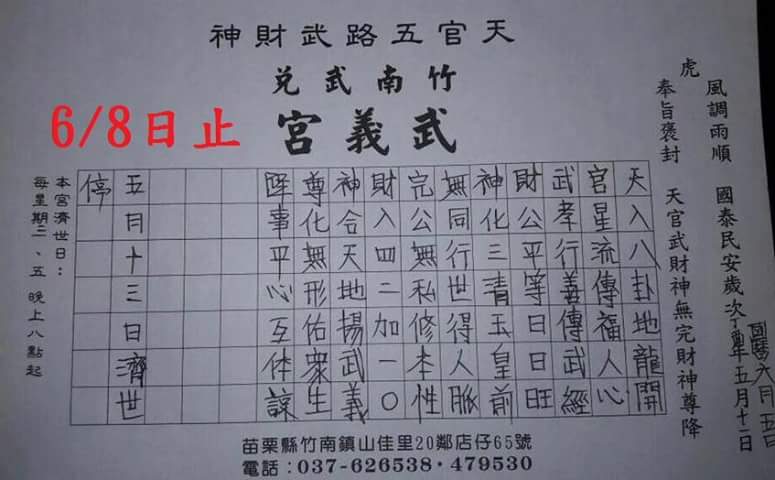 天官五路武財神
竹南武兌
武義宮
6/8日止
國曆六月五日
風調雨順 國泰民安歲次丁酉年五月十一日
虎
奉旨褒封 天官武財神無完財神尊降
天入八卦地龍開
官星流傳福人心
武孝行善傳武經
財公平等日日旺
神化三清玉皇前
無同行世得人脈
完公無私修本性
財入四二加一○
神合天地揚武義
尊化無形佑眾生
降事平心互体諒
五月十三日濟世
停
本宮濟世日：
每星期二、五 晚上八點起
苗栗縣竹南鎮山佳里20鄰店仔65號
電話：037-626538·479530